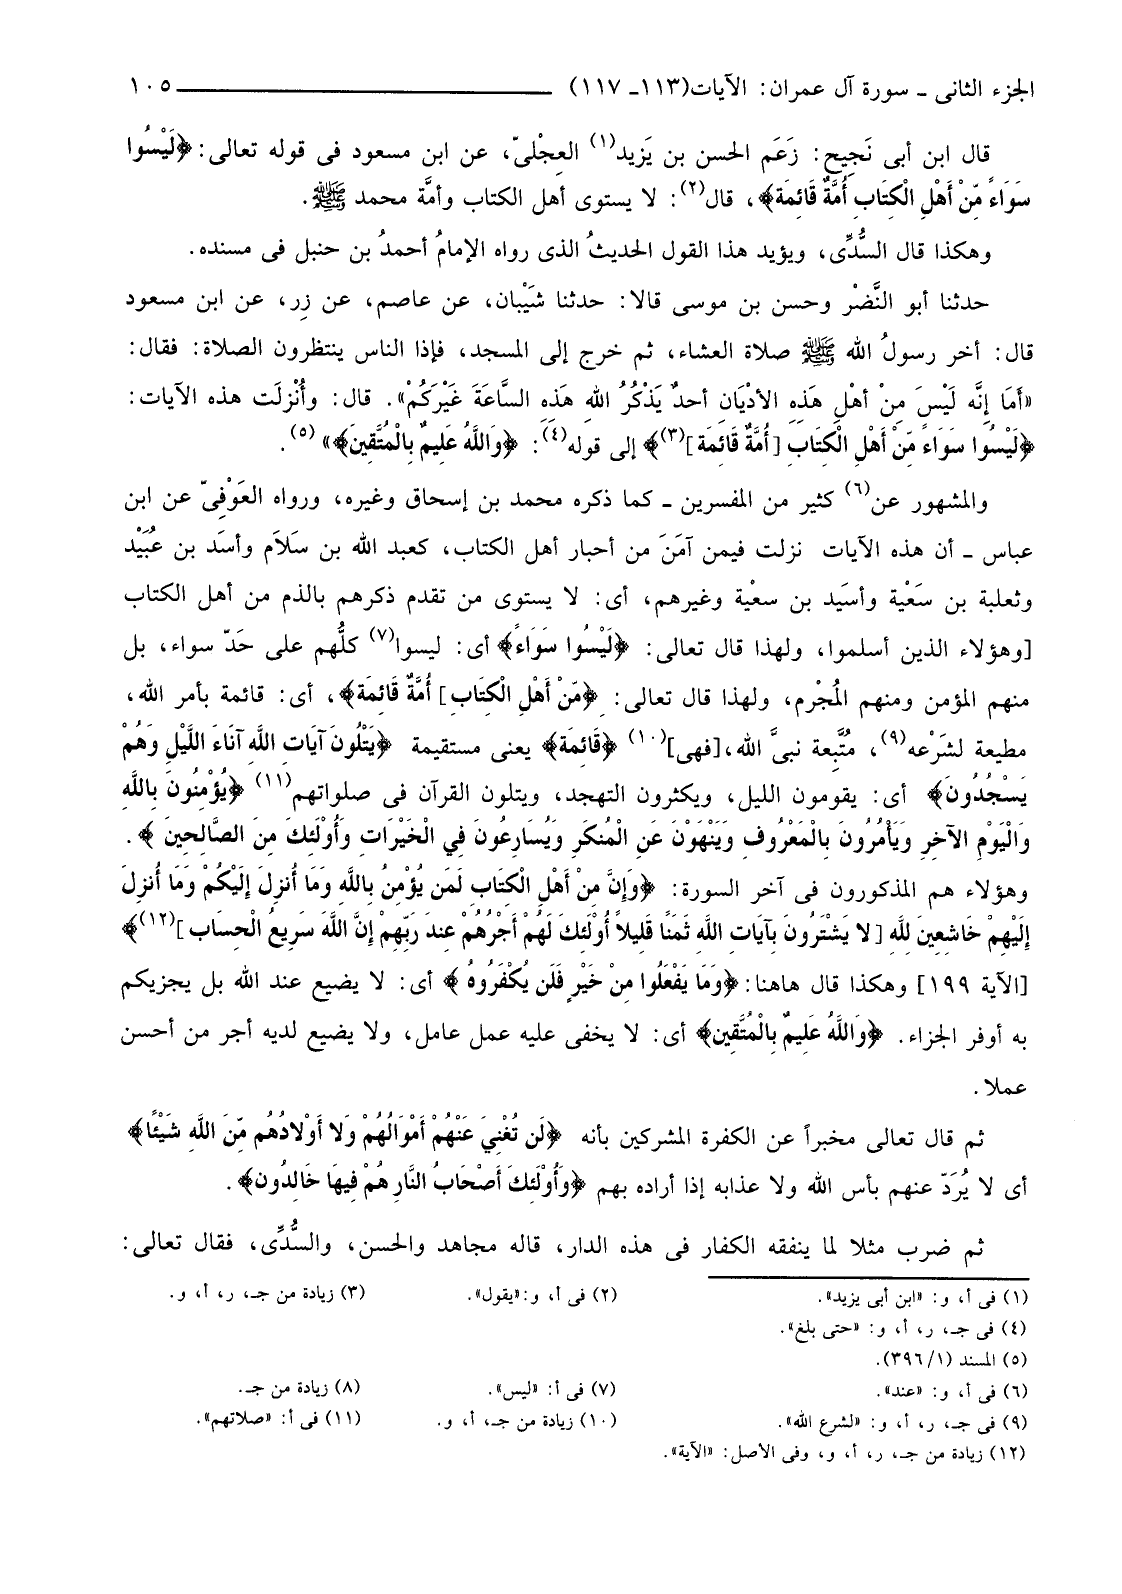 الجزء الثانى ـ سورة آل عمران: الآيات(١١٣ـ ١١٧) ١٠٥
قال ابن أبى نَجِيح: زَعَم الحسن بن يَزيد(١) العِجْلىّ، عن ابن مسعود فى قوله تعالى: ﴿لَيْسُوا
سَوَاءً مِّنْ أَهْلِ الْكِتَابِ أُمَّةٌ قَائِمَة﴾، قال(٢): لا يستوى أهل الكتاب وأمَّة محمد ﷺ.
وهكذا قال السُّدِّى، ويؤيد هذا القول الحديثُ الذى رواه الإمامُ أحمدُ بن حنبل فى مسنده.
حدثنا أبو النَّضْر وحسن بن موسى قالا: حدثنا شَيْبان، عن عاصم، عن زِر، عن ابن مسعود
قال: أخر رسولُ الله ﷺ صلاة العشاء، ثم خرج إلى المسجد، فإذا الناس ينتظرون الصلاة: فقال:
«أمَا إنَّه لَيْسَ مِنْ أهْلِ هَذِهِ الأدْيَانِ أحدٌ يَذْكُرُ اللهَ هَذِهِ السَّاعَةَ غَيْرَكُمْ». قال: وأُنْزِلَت هذه الآيات:
﴿لَيْسُوا سَوَاءً مِّنْ أَهْلِ الْكِتَابِ [أُمَّةٌ قَائِمَة](٣)﴾ إلى قوله(٤): ﴿وَاللَّهُ عَلِيمٌ بِالْمُتَّقِينَ﴾» (٥).
والمشهور عن(٦) كثير من المفسرين ـ كما ذكره محمد بن إسحاق وغيره، ورواه العَوْفِىّ عن ابن
عباس ـ أن هذه الآيات نزلت فيمن آمَنَ من أحبار أهل الكتاب، كعبد الله بن سَلام وأسَد بن عُبَيْد
وثعلبة بن سَعْية وأسَيد بن سعْية وغيرهم، أى: لا يستوى من تقدم ذكرهم بالذم من أهل الكتاب
[وهؤلاء الذين أسلموا، ولهذا قال تعالى: ﴿لَيْسُوا سَوَاءً﴾ أى: ليسوا(٧) كلُّهم على حَدّ سواء، بل
منهم المؤمن ومنهم المُجْرم، ولهذا قال تعالى: ﴿مِّنْ أَهْلِ الْكِتَابِ] أُمَّةٌ قَائِمَة﴾، أى: قائمة بأمر الله،
مطيعة لشَرْعه(٩)، مُتَّبعة نبىَّ الله،[فهى](١٠) ﴿قَائِمة﴾ يعنى مستقيمة ﴿يَتْلُونَ آيَاتِ اللَّهِ آنَاءَ اللَّيْلِ وَهُمْ
يَسْجُدُونَ﴾ أى: يقومون الليل، ويكثرون التهجد، ويتلون القرآن فى صلواتهم(١١) ﴿يُؤْمِنُونَ بِاللَّهِ
وَالْيَوْمِ الآخِرِ وَيَأْمُرُونَ بِالْمَعْرُوفِ وَيَنْهَوْنَ عَنِ الْمُنكَرِ وَيُسَارِعُونَ فِي الْخَيْرَاتِ وَأُوْلَئِكَ مِنَ الصَّالِحِينَ ﴾.
وهؤلاء هم المذكورون فى آخر السورة: ﴿وَإِنَّ مِنْ أَهْلِ الْكِتَابِ لَمَن يُؤْمِنُ بِاللَّهِ وَمَا أُنزِلَ إِلَيْكُمْ وَمَا أُنزِلَ
إِلَيْهِمْ خَاشِعِينَ لِلَّهِ [لا يَشْتَرُونَ بِآيَاتِ اللَّهِ ثَمَنًا قَلِيلاً أُوْلَئِكَ لَهُمْ أَجْرُهُمْ عِندَ رَبِّهِمْ إِنَّ اللَّهَ سَرِيعُ الْحِسَاب](١٢)﴾
[الآية ١٩٩] وهكذا قال هاهنا: ﴿وَمَا يَفْعَلُوا مِنْ خَيْرٍ فَلَن يُكْفَرُوهُ ﴾ أى: لا يضيع عند الله بل يجزيكم
به أوفر الجزاء. ﴿وَاللَّهُ عَلِيمٌ بِالْمُتَّقِينَ﴾ أى: لا يخفى عليه عمل عامل، ولا يضيع لديه أجر من أحسن
عملا.
ثم قال تعالى مخبراً عن الكفرة المشركين بأنه ﴿لَن تُغْنِيَ عَنْهُمْ أَمْوَالُهُمْ وَلا أَوْلادُهُم مِّنَ اللَّهِ شَيْئًا﴾
أى لا يُرَدّ عنهم بأس الله ولا عذابه إذا أراده بهم ﴿وَأُوْلَئِكَ أَصْحَابُ النَّارِ هُمْ فِيهَا خَالِدُون﴾.
ثم ضرب مثلا لما ينفقه الكفار فى هذه الدار، قاله مجاهد والحسن، والسُّدِّى، فقال تعالى:
(١) فى أ، و: «ابن أبى يزيد». (٢) فى أ، و:«يقول». (٣) زيادة من جـ، ر، أ، و.
(٤) فى جـ، ر، أ، و: «حتى بلغ».
(٥) المسند (١/ ٣٩٦).
(٦) فى أ، و: «عند». (٧) فى أ: «ليس». (٨) زيادة من جـ.
(٩) فى جـ، ر، أ، و: «لشرع الله». (١٠) زيادة من جـ، أ، و. (١١) فى أ: «صلاتهم».
(١٢) زيادة من جـ، ر، أ، و، وفى الأصل: «الآية».